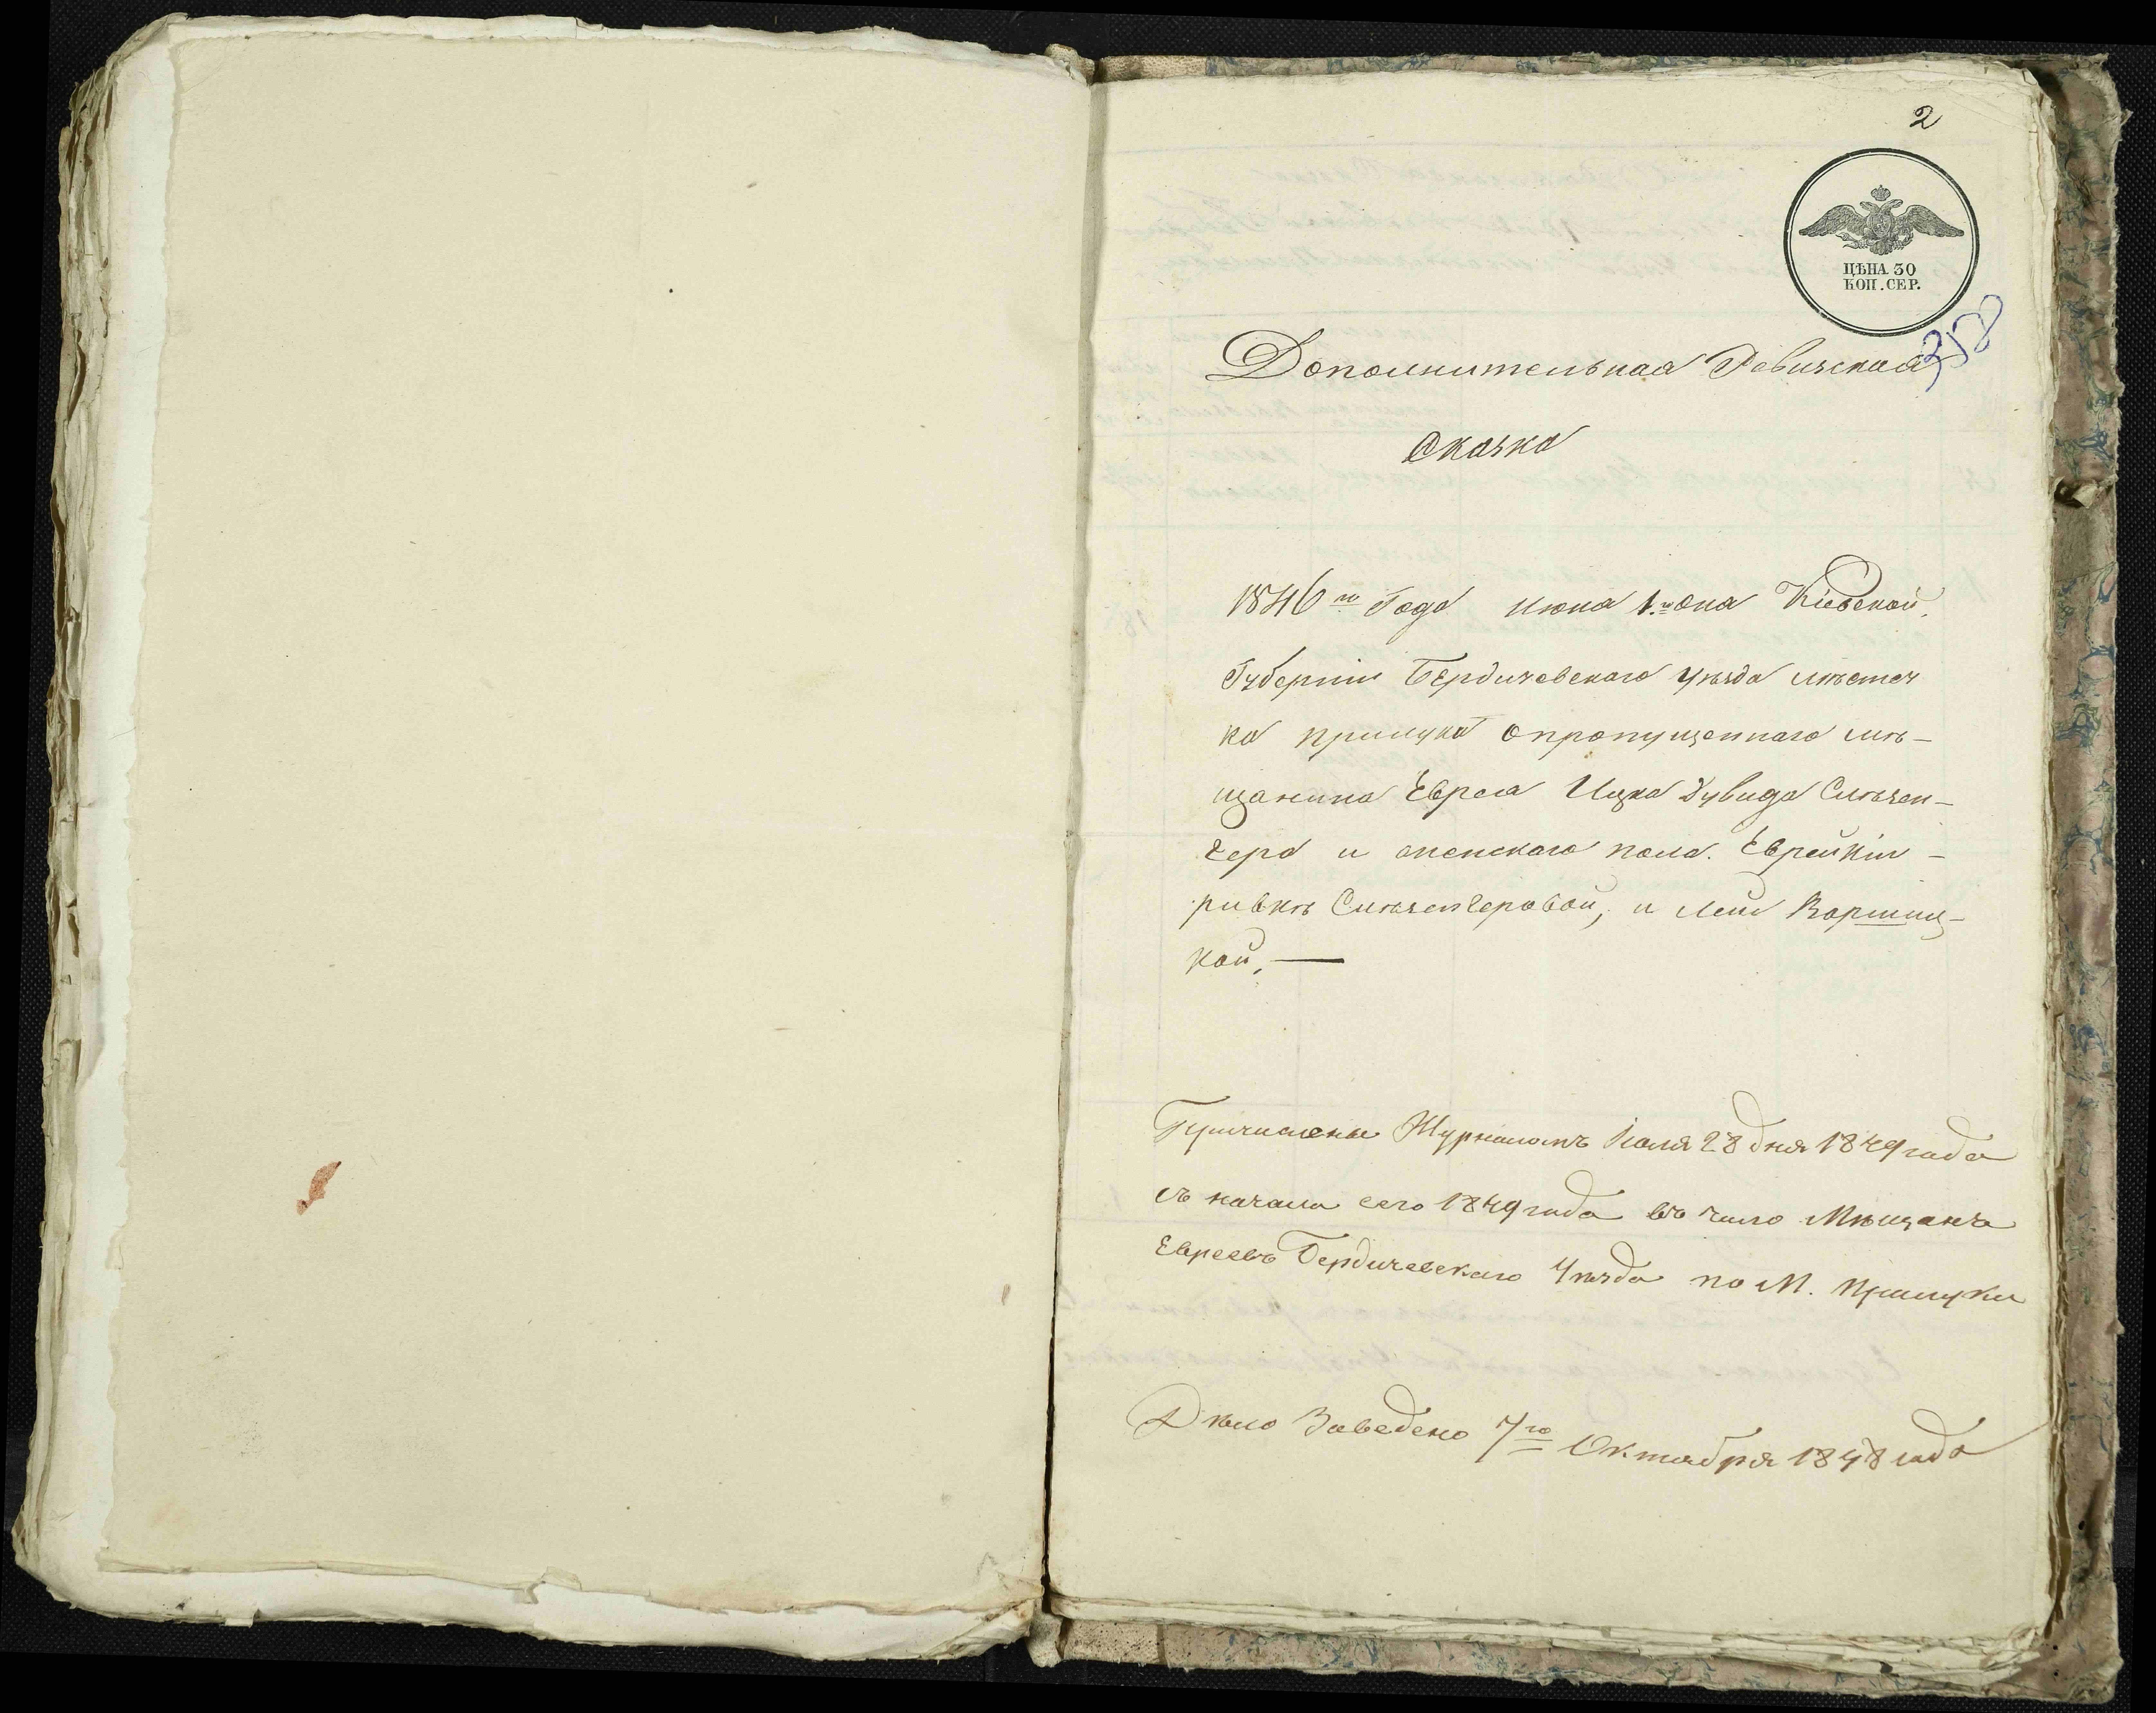 2
ЦѢНА 30
КОП. СЕР.
318
Дополнительная Ревизская
Сказка
1846го Года июня 1.го дня Кіевской
Губерніи Бердичевскаго уѣзда мѣстеч
ка прилуки о пропущеннаго мѣ-
щанина Еврея Ицка Дувида
и женскаго пола. Еврейкіи -
ривкѣ и Леи Варшиц-
кой, —
Причислены Журналомъ Іюля 28 дня 1849 года
съ начала сего 1849 года въ число Мѣщанъ
Евреевъ Бердичевскаго Уѣзда по М. Прилуки
Дѣло Заведено 7го Октября 1848 года